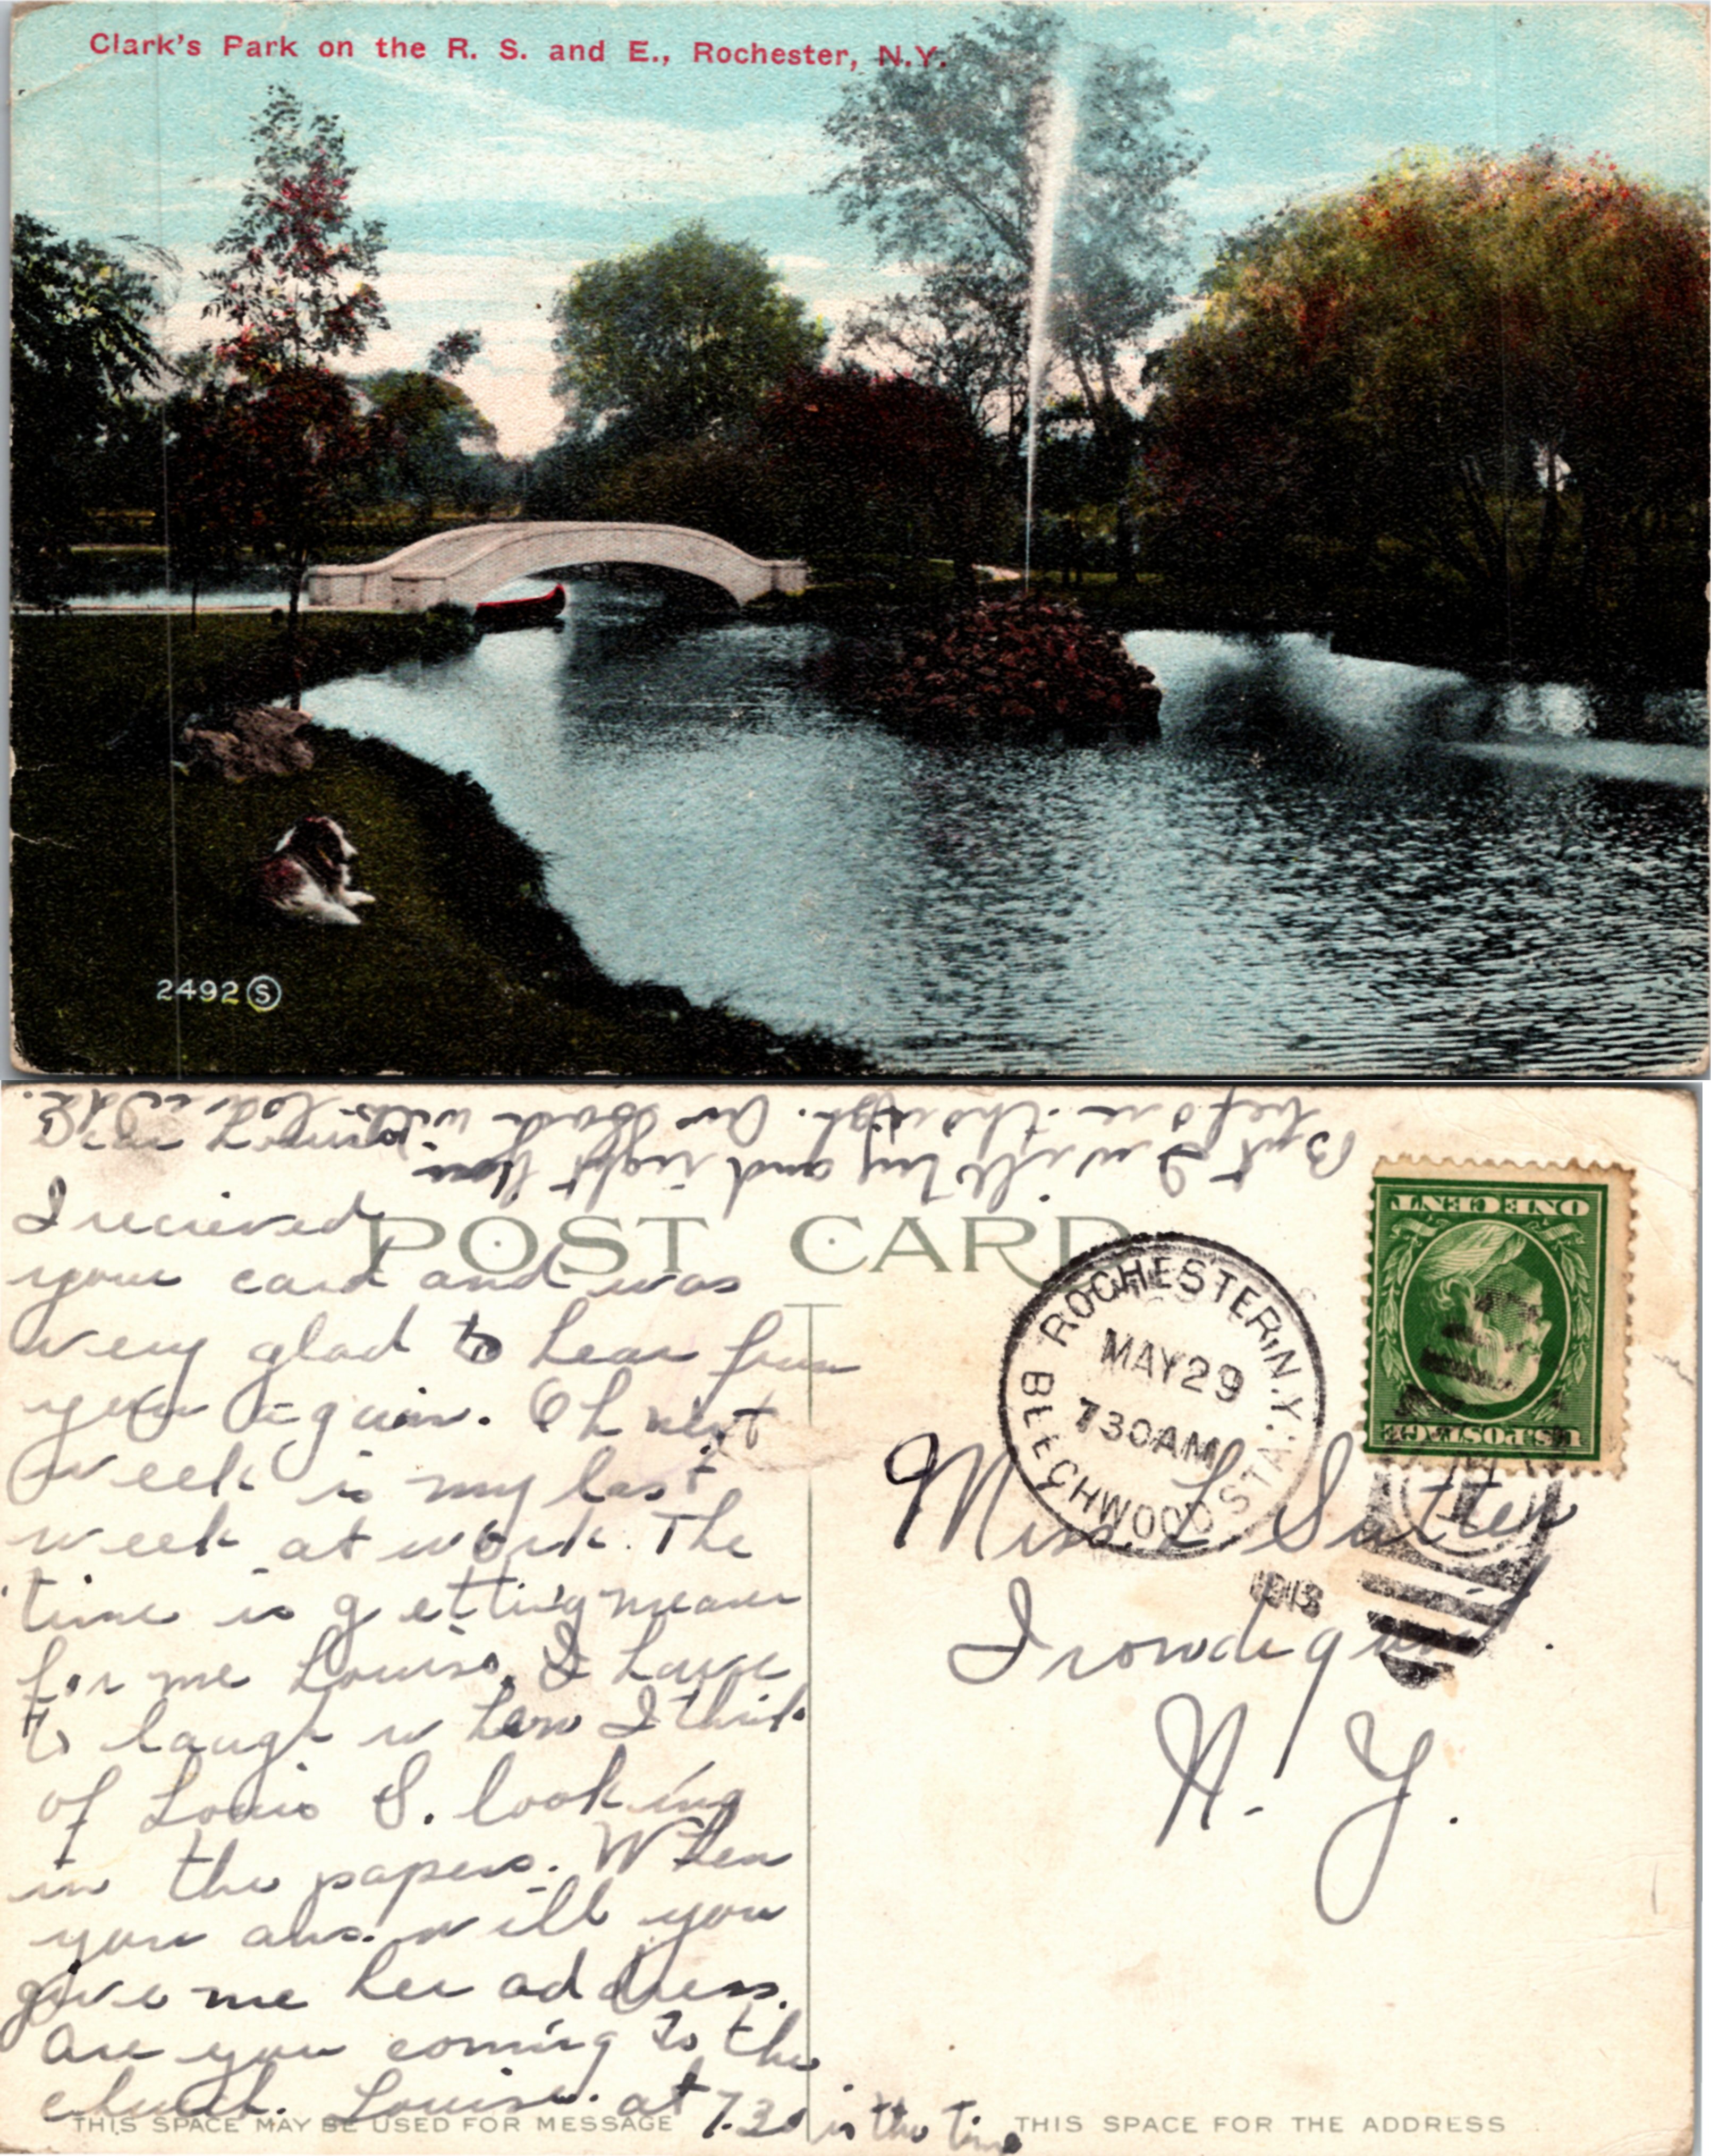 Clark's Park on the R. S. and E., Rochester, N.Y.
2492 S
Dear Louise
I recieved
your card and was
very glad to hear from
you again. Oh next
week is my last
week at work. The
time is getting nearer
for me Louise. I have
to laugh when I think
of Louis S. looking
in the papers. When
you ans. will you
give me her address.
Are you coming to the
church. Louise. at 7.30 is the time
But I will try and right you
before though. Au with Love
POST CARD
ROCHESTER, N.Y.
MAY 29
730 AM
BEECHWOOD STA.
1913
ONE CENT
U.S. POSTAGE
Miss L Sutter
Irondiquit.
N. Y.
THIS SPACE MAY BE USED FOR MESSAGE
THIS SPACE FOR THE ADDRESS